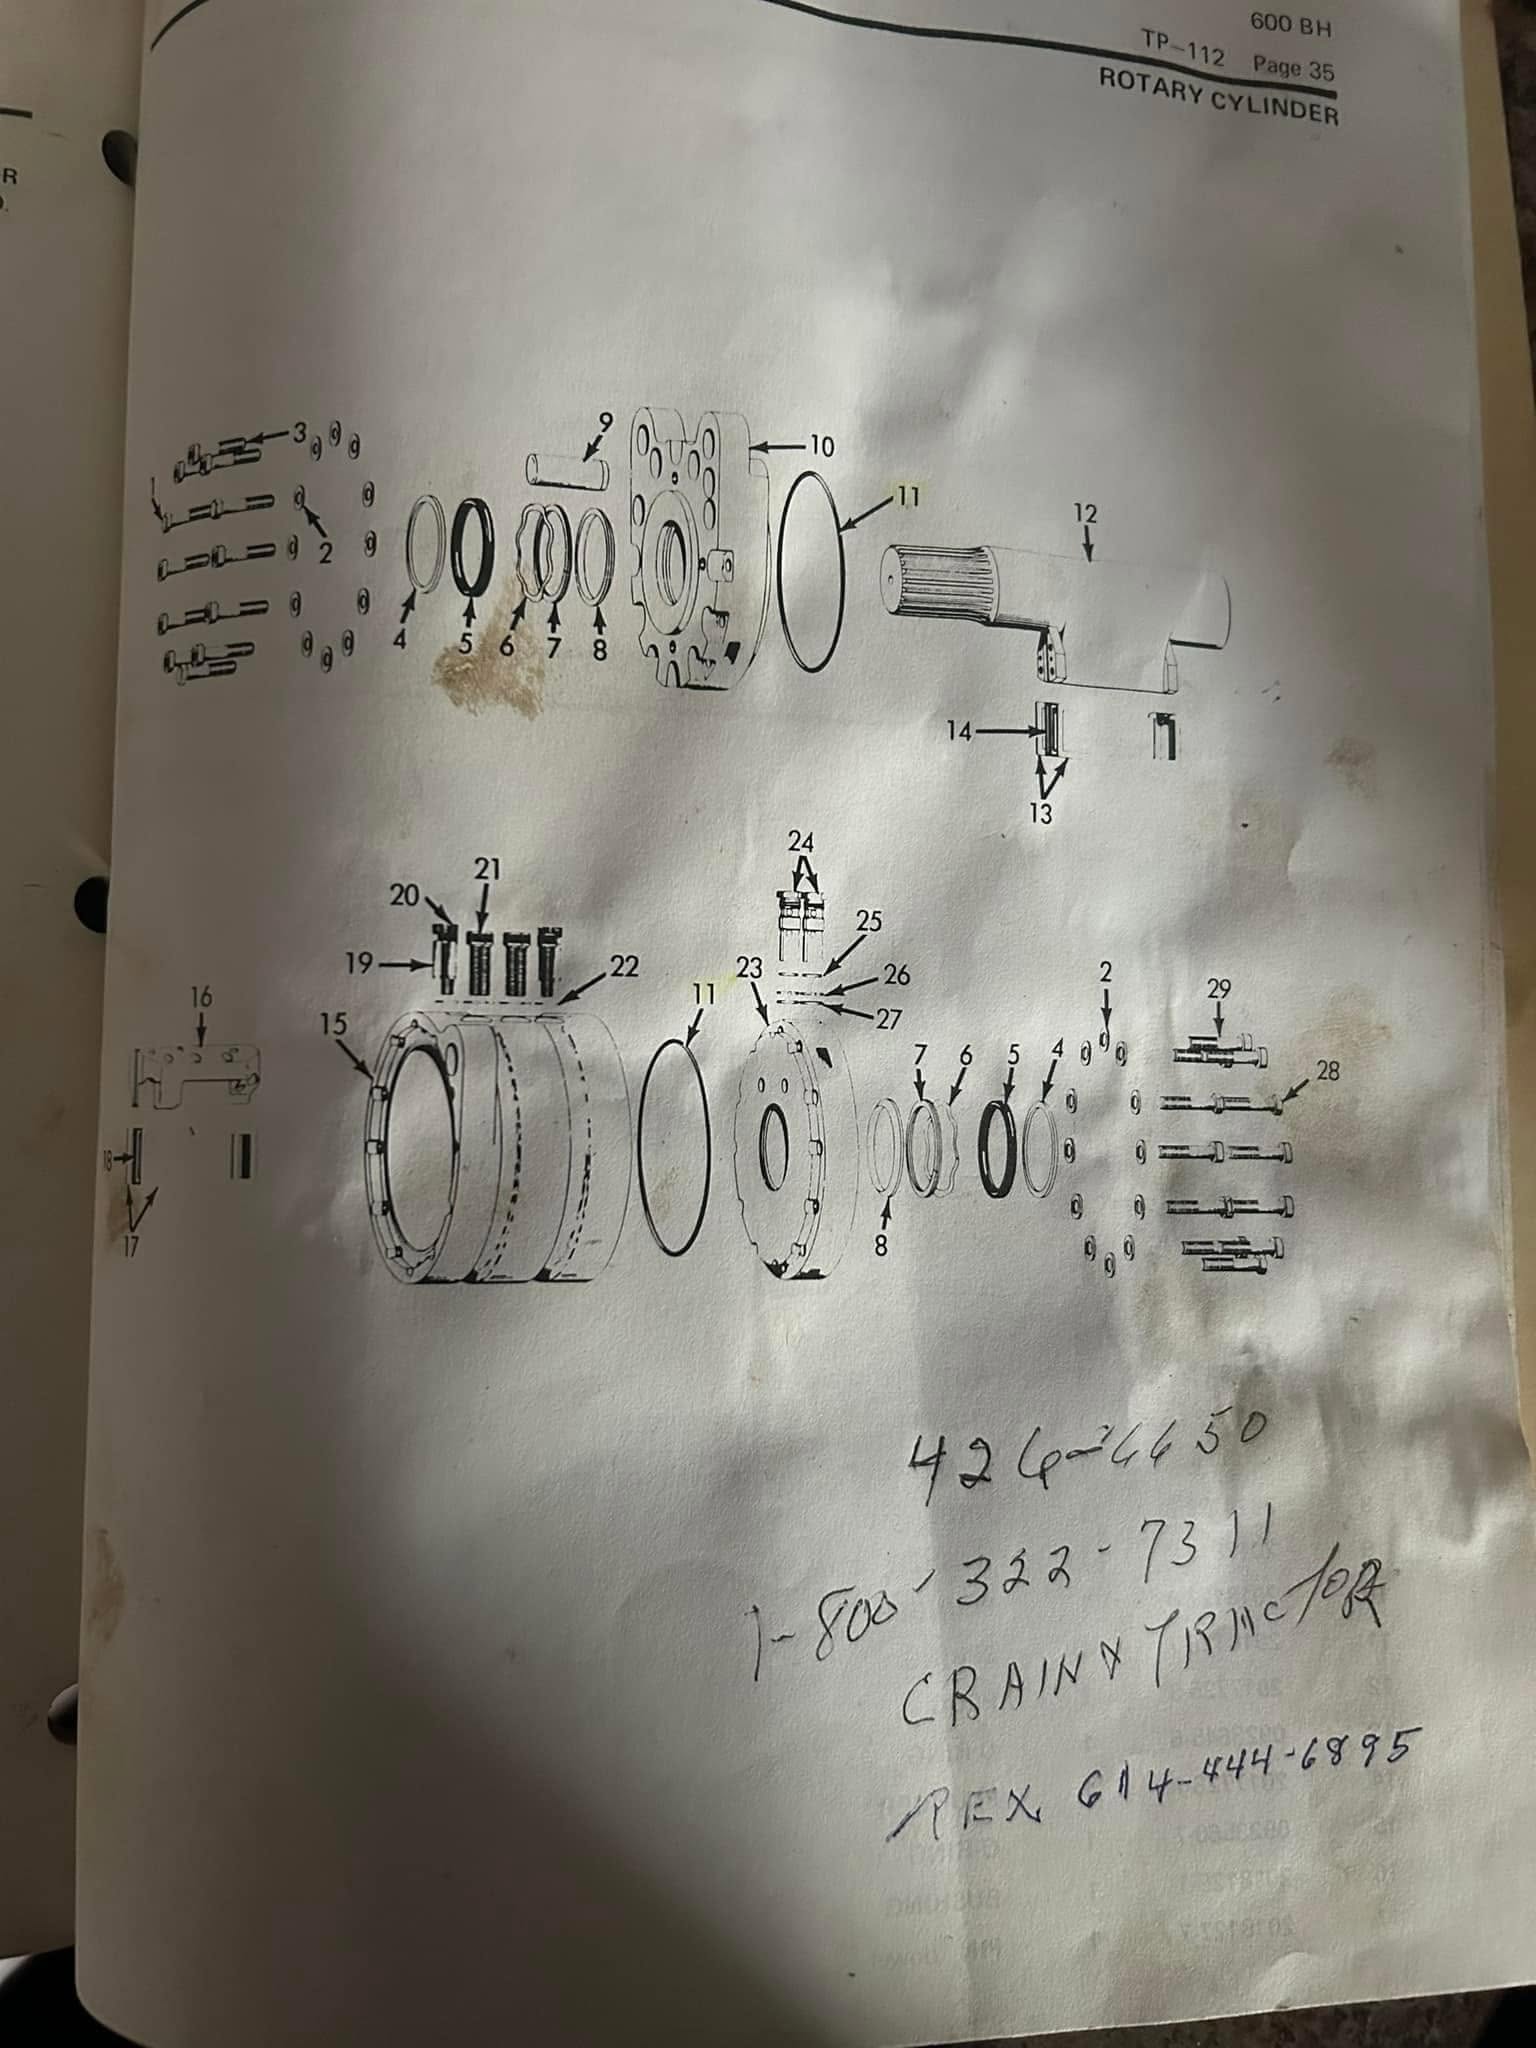 600 BH
TP-112 Page 35
ROTARY CYLINDER
R
3
9
10
11
12
1
2
4
5
6
7
8
14
13
24
21
20
25
19
22
23
26
2
29
16
11
27
15
7
6
5
4
28
18
8
17
1-800-322-7311
CRAIN
REX 614-444-6895